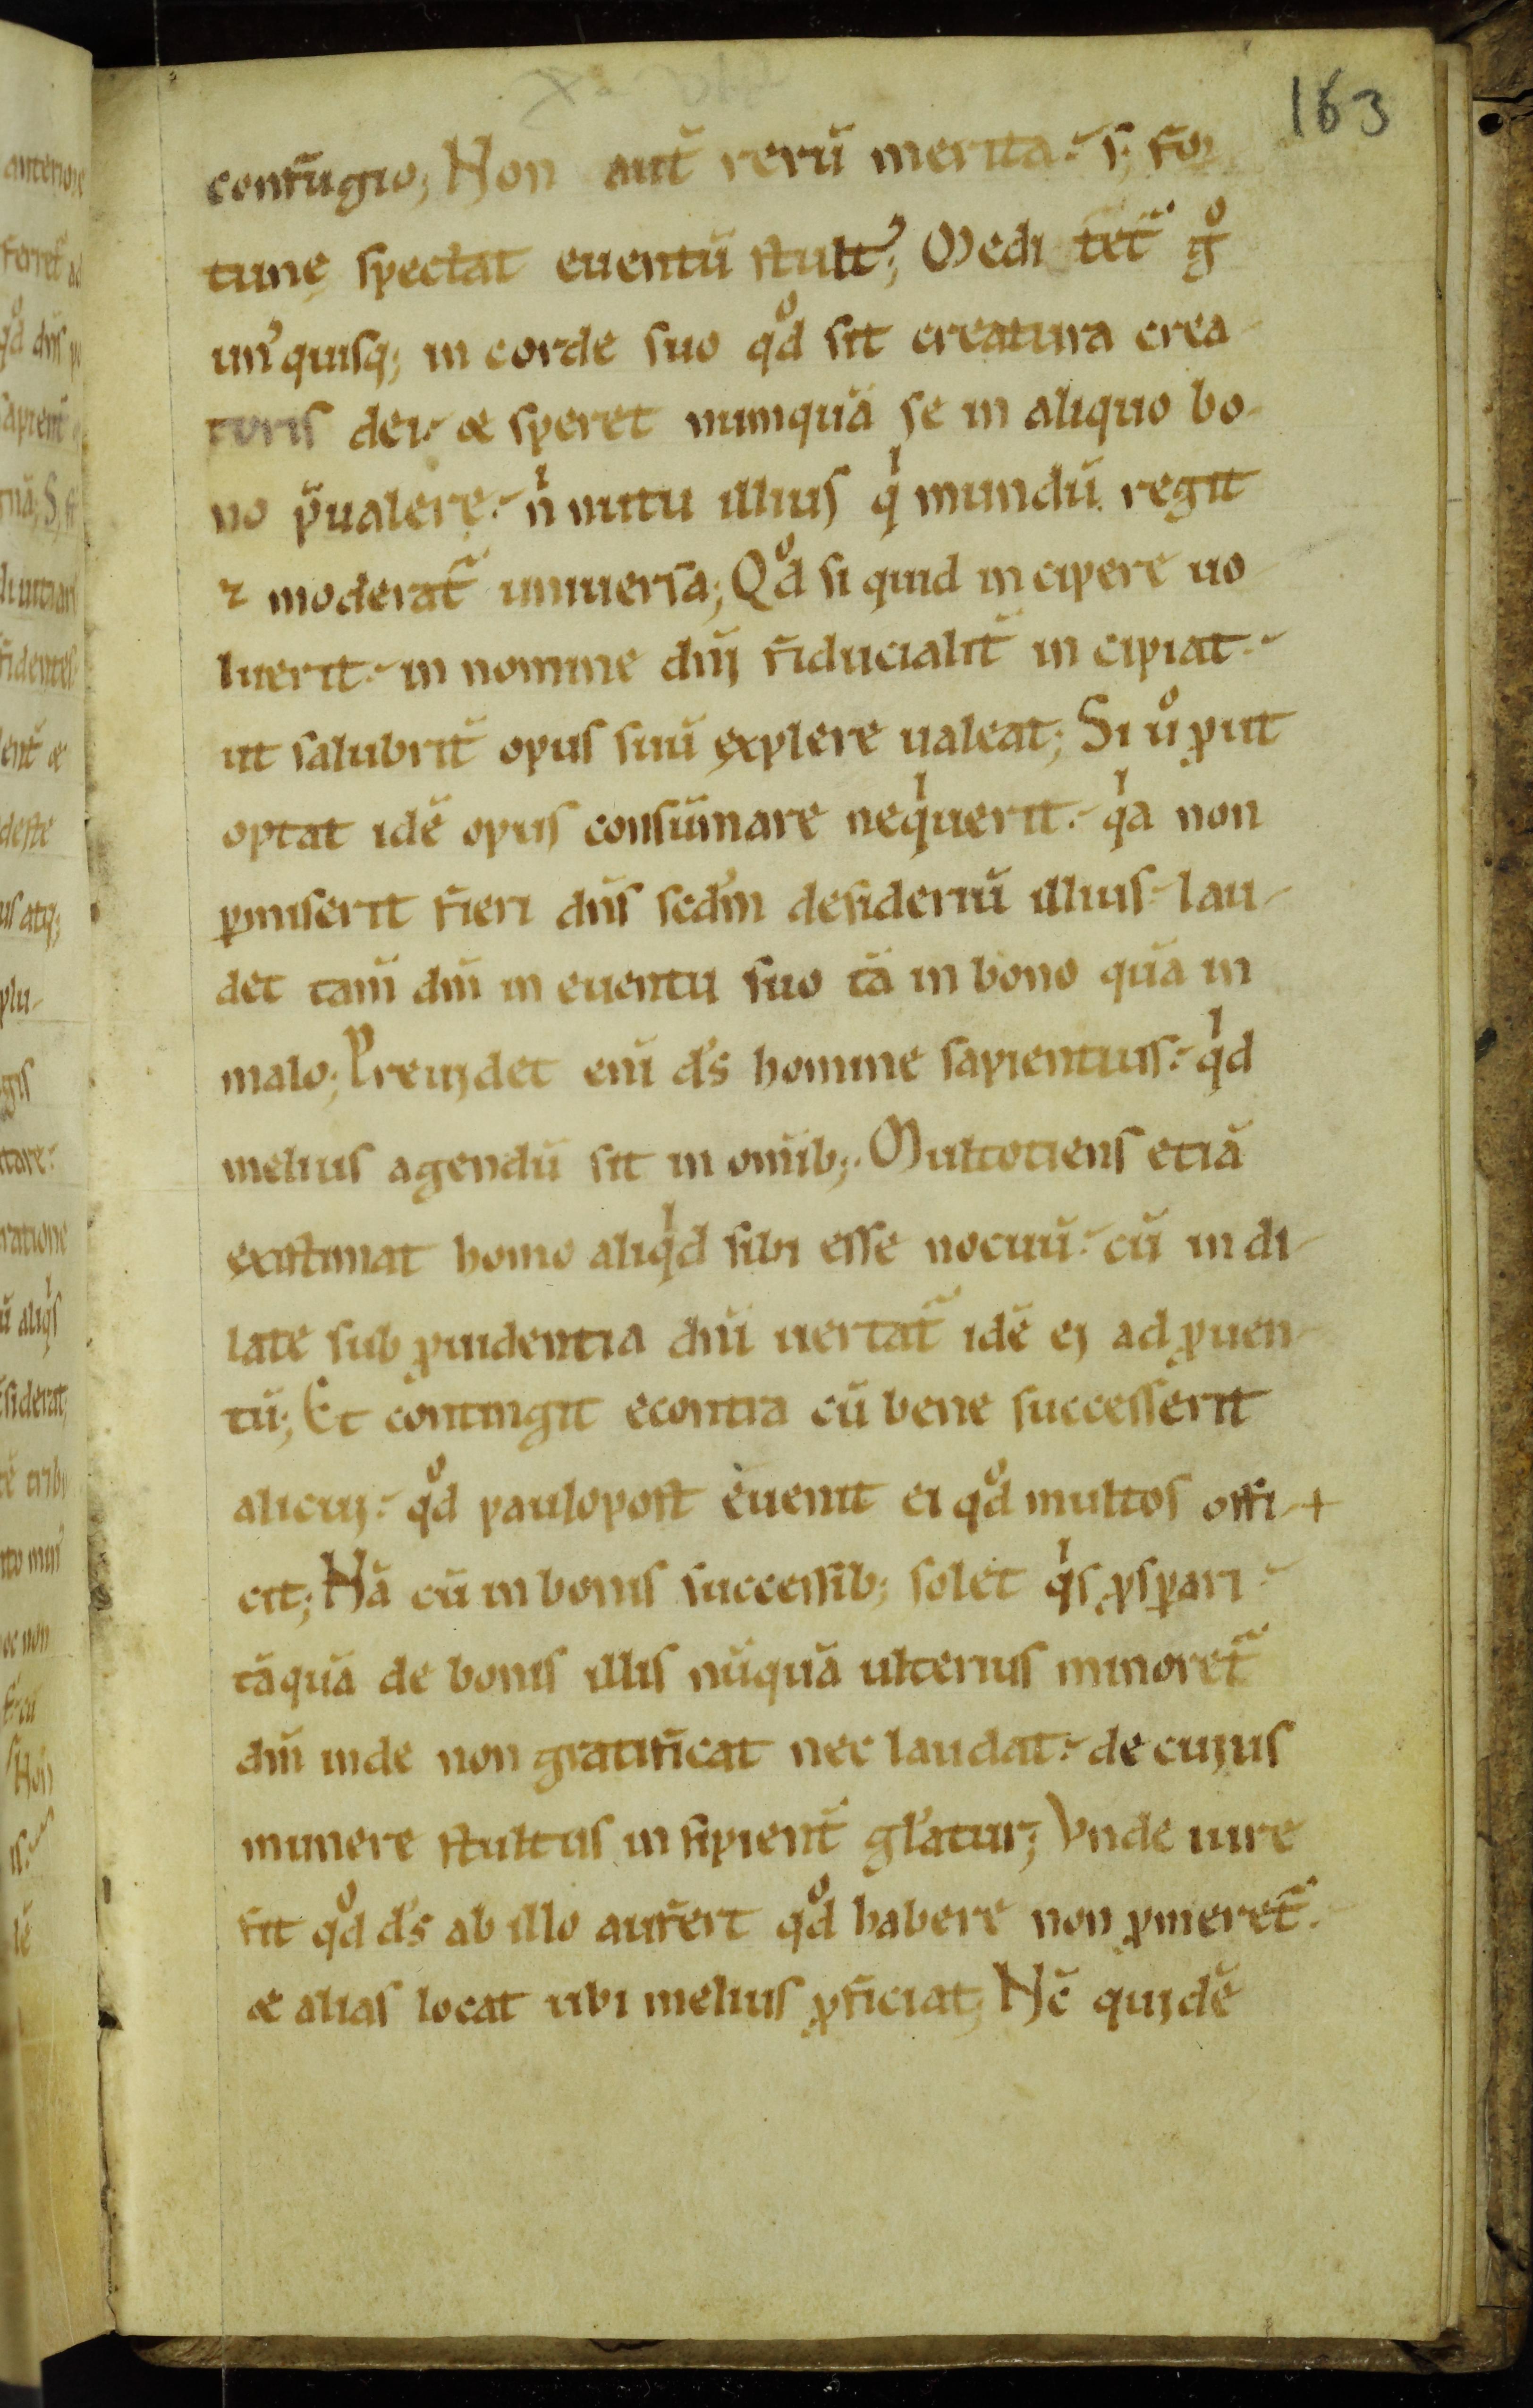 163
confugio; Non aut̄ rerū merita· s; for
tunę spectat euentū stult᷒; Medi tet᷑ gͦ
un᷒quisq; in corde suo qͦd sit creatura crea-
turis dei· & speret numquā se in aliquo bo-
no p̄ualere· nͥ nutu illius qͥ mundū regit
⁊ moderat᷑ uniuersa; Qͦd si quid in cipere uo
luerit· in nomine dn̄j fiducialit̄ in cipiat·
ut salubrit̄ opus suū explere ualeat; Si uͦ ꝓut
optat idē opus consūmare neqͥuerit· qͥa non
ꝑmiserit fieri dn̄s scd̄m desideriū illius· lau-
det tam̄ dm̄ in euentu suo tā in bono quā in
malo; Preuidet eni̅ d̄s homine sapientius· qͥd
melius agendū sit in om̄ib;· Multotiens etiā
existimat homo aliqͥd sibi esse nocuū· cū in di-
late sub ꝓuidentia dn̄i uertat᷑ idē ej ad ꝓuen-
tū; Et contingit econtra cū bene successerit
alicuj· qͦd paulopost euenit ei qͦd multos offi- +
cit; Nā cū in bonis successib; solet qͥs ꝓsꝑari·
tāquā de bonis illis nūquā ulterius minoret᷑
dm̄ inde non gratificat nec laudat· de cujus
munere stultus in sipient̄ gl̄atur; Vnde iure
fit qͦd d̄s ab illo aufert qͦd habere non ꝓmeret᷑·
& alias locat ubi melius ꝓficiat; Nc̄ qujdē